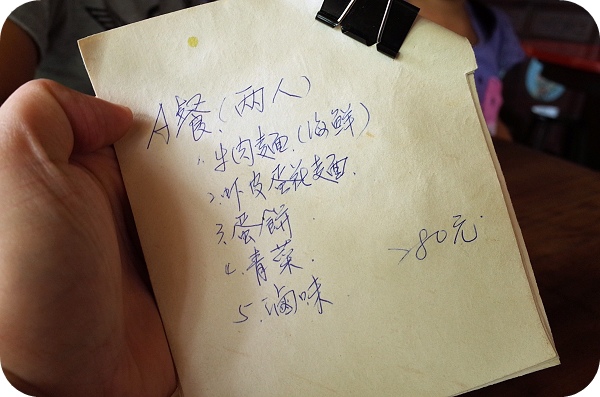 A餐.(兩人)
1.牛肉麵(海鮮)
2.虾皮蛋花麵.
3.蛋餅.
4.青菜.
280元.
5.滷味